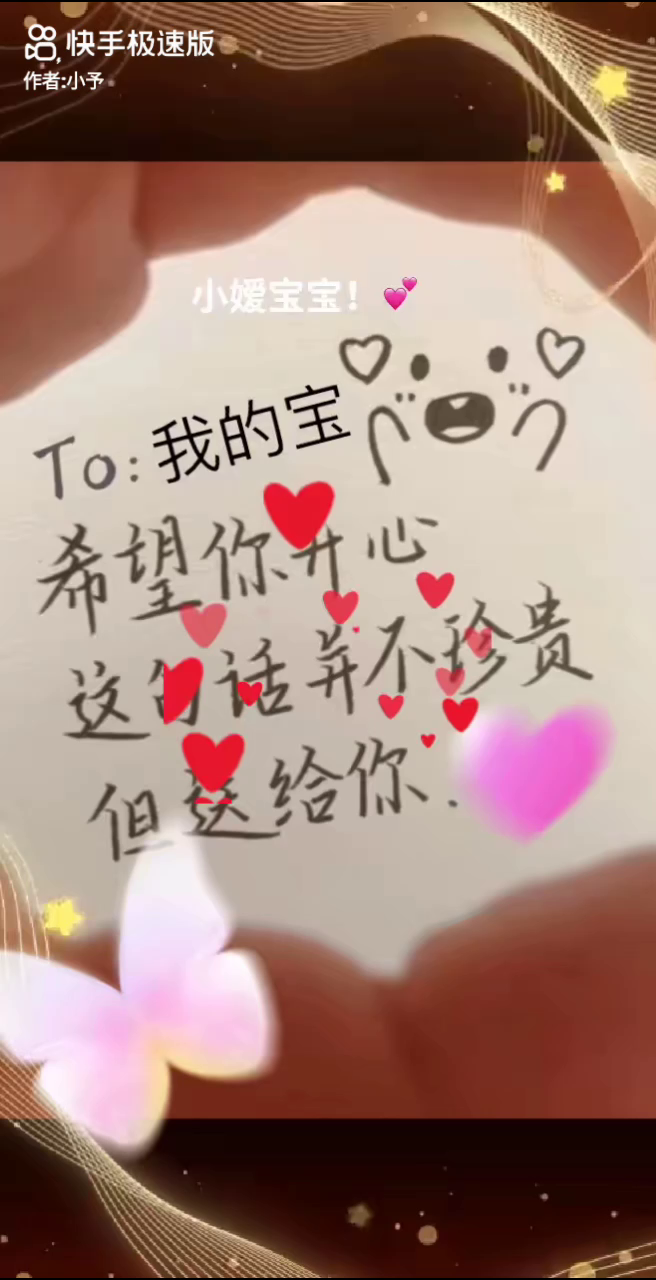 快手极速版
作者:小予
小嫒宝宝！💕
To:我的宝
希望你开心
这句话并不珍贵
但送给你.